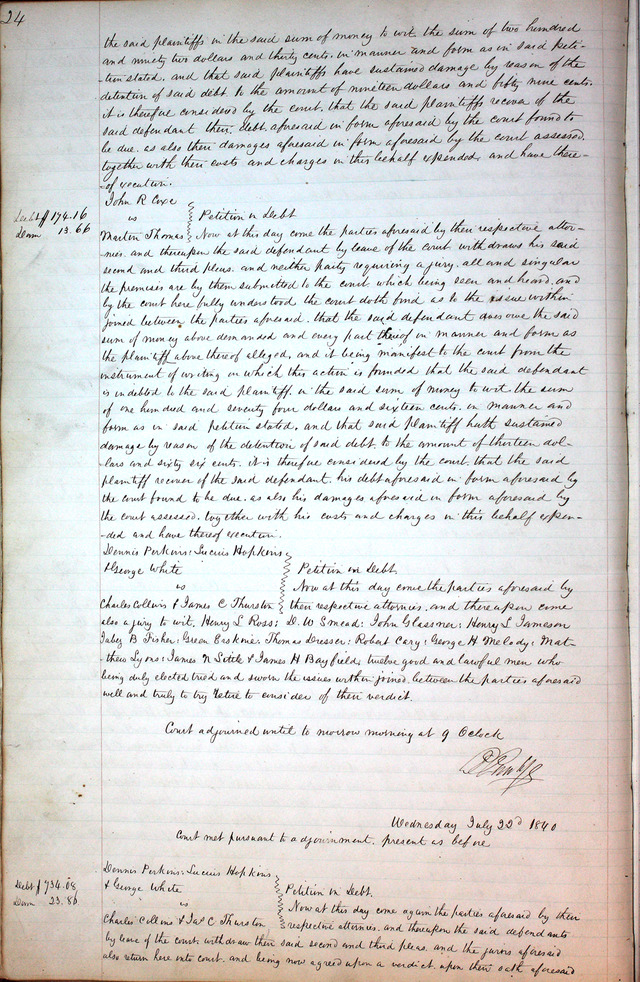 24
the said plaintiffs in the said sum of money to wit the sum of two hundred
and ninety two dollars and thirty cents. in manner and form as in said peti-
tion stated. and that said plaintiffs have sustained damage by reason of the
detention of said debt to the amount of nineteen dollars and fifty nine cents.
it is therefore considered by the court. that the said plaintiffs recover of the
said defendant their debt aforesaid in form aforesaid by the court found to
be due. as also their damages aforesaid in form aforesaid by the court assessed.
together with their costs and charges in this behalf expended. and have there-
of execution.
John R Coxe
Debt $174.16
vs
Petition in Debt
Dam 13.66
Martin Thomas
Now at this day come the parties aforesaid by their respective attor-
nies. and thereupon the said defendant by leave of the court withdraws his said
second and third pleas. and neither party requiring a jury. all and singular
the premises are by them submitted to the court which being seen and heard. and
by the court here fully understood the court doth find as to the issue within
joined between the parties aforesaid. that the said defendant does owe the said
sum of money above demanded and every part thereof in manner and form as
the plaintiff above thereof alleged, and it being manifest to the court from the
instrument of writing on which this action is founded that the said defendant
is indebted to the said plaintiff. in the said sum of money to wit. the sum
of one hundred and seventy four dollars and sixteen cents. in manner and
form as in said petition stated, and that said plaintiff hath sustained
damage by reason of the detention of said debt. to the amount of thirteen dol-
lars and sixty six cents. it is therefore considered by the court. that the said
plaintiff recover of the said defendant. his debt aforesaid in form aforesaid by
the court found to be due. as also his damages aforesaid in form aforesaid by
the court assessed. together with his costs and charges in this behalf expen-
ded and have thereof execution.
Dennis Perkins: Lucius Hopkins
& George White
Petition in Debt.
vs
Now at this day come the parties aforesaid by
Charles Collins & James C Thurston
their respective attornies. and thereupon come
also a jury to wit. Henry L Ross: D. W Smead: John Glassmer: Henry L Jameson
Jabez B Fisher: Green Erskine: Thomas Dresser: Robert Cary: George H Melody: Mat-
thew Lyons: James N Settle & James H Bayfield, twelve good and lawful men who
being duly elected tried and sworn the issues within joined between the parties aforesaid
well and truly to try retire to consider of their verdict.
Court adjourned until to morrow morning at 9 Oclock
Wednesday July 22d 1840
Court met pursuant to adjournment. present as before
Dennis Perkins: Lucius Hopkins
Debt $734.08
& George White
Petition in Debt.
Dam 23.86
vs
Now at this day come again the parties aforesaid by their
Charles Collins & Jas C Thurston
respective attornies. and thereupon the said defendants
by leave of the court withdraw their said second and third pleas. and the jurors aforesaid
also return here into court. and being now agreed upon a verdict. upon their oath aforesaid